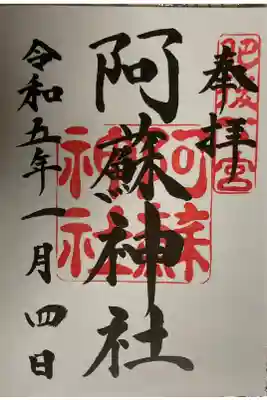 奉拝
肥後一宮
阿蘇神社
阿蘇神社
令和五年一月四日